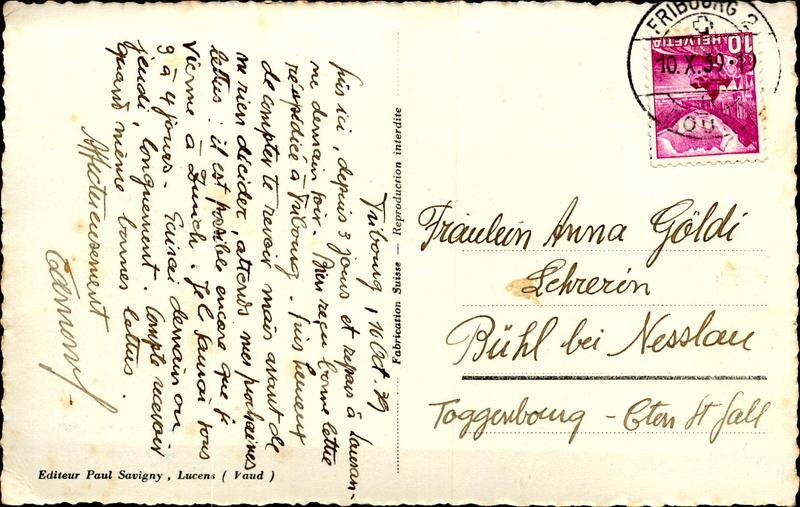 Fribourg, 10 Oct. 39
Suis ici, depuis 3 jours et repars à Lausan-
ne demain soir. Bien reçu bonne lettre
réexpédiée à Fribourg. Suis heureux
de compter te revoir mais avant de
ne rien décider, attends mes prochaines
lettres: il est possible encore que je
vienne à Zurich. Je t'
3 à 4 jours. demain ou
jeudi, longuement. Compte recevoir
quand même bonnes lettres.
Affectueusement
Fabrication Suisse — Reproduction interdite
Editeur Paul Savigny, Lucens ( Vaud )
FRIBOURG 2
10.X.39
10 HELVETIA
Fräulein Anna Göldi
Lehrerin
Bühl bei Nesslau
Toggenbourg - Cton St Gall